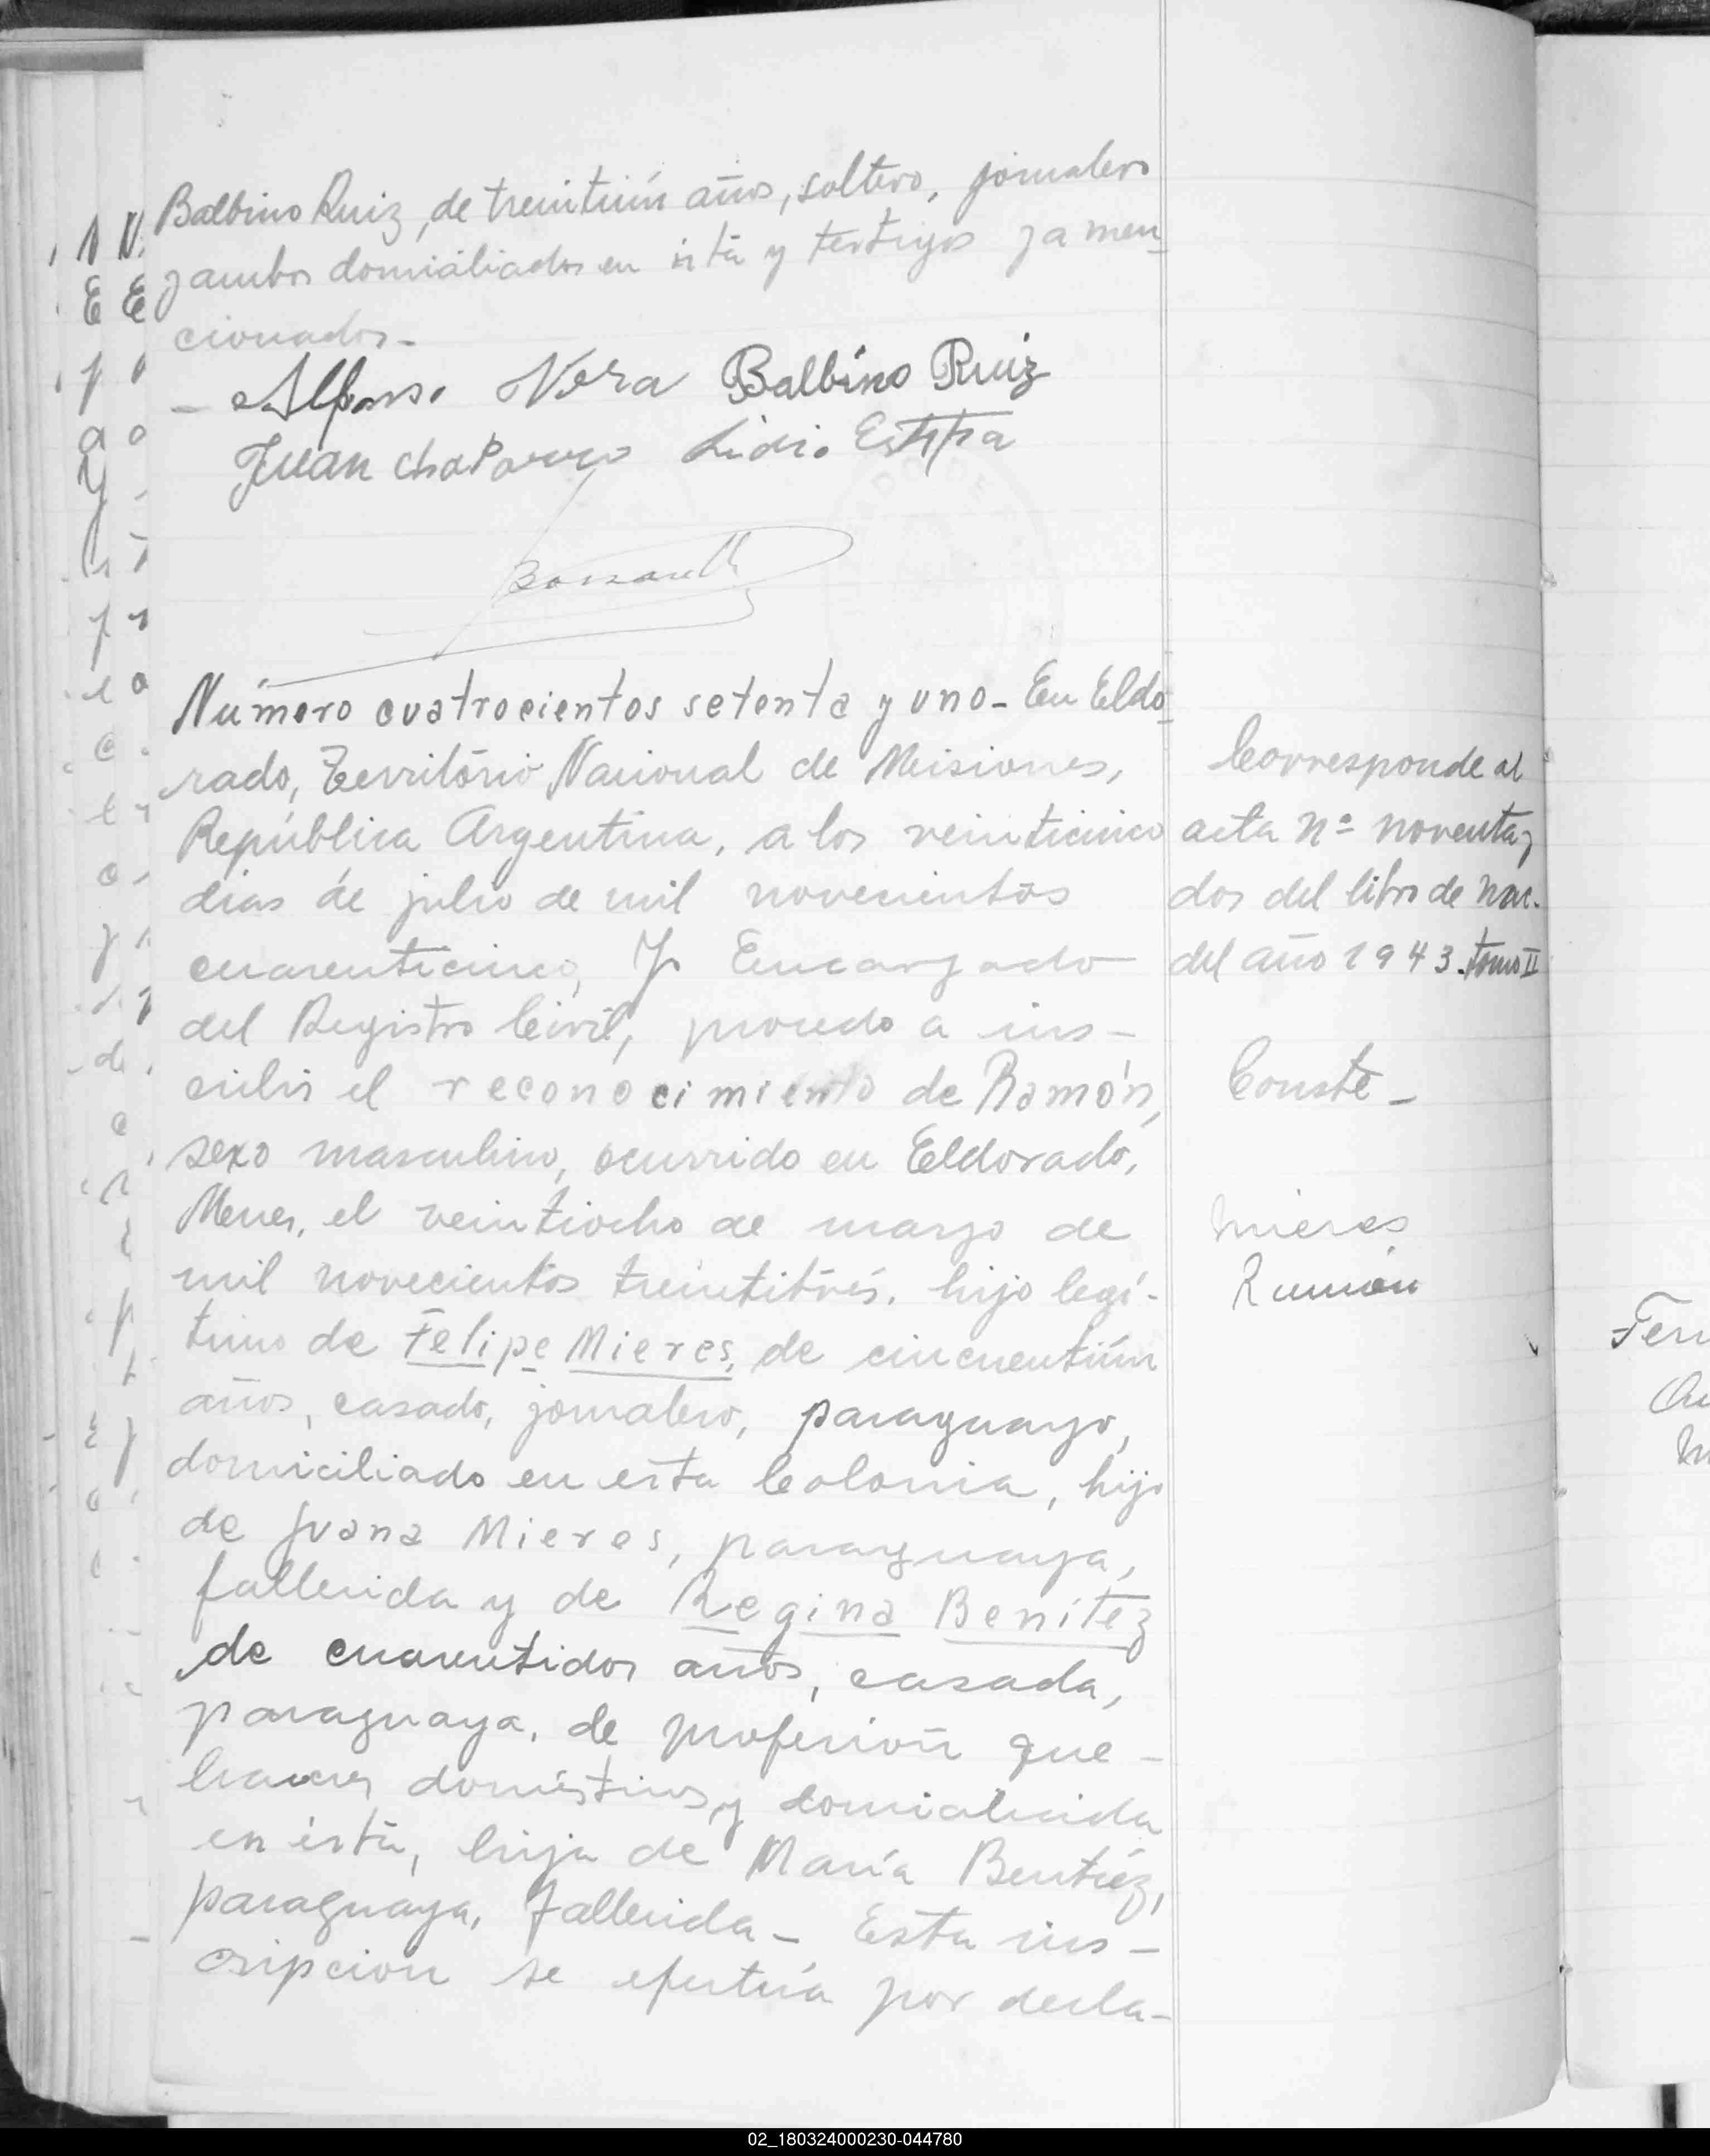 Balbino Ruiz, de treintiún años, soltero, jornalero
y ambos domiciliados en ésta y testigos ya men-
cionados.-
- Alfonso Vera Balbino Ruiz
Juan chaParro Lidio
Número cuatrocientos setenta y uno - En Eldo-
rado, Território Nacional de Misiones,
República Argentina, a los veinticinco
días de julio de mil novecientos
cuarenticinco, Yo Encargado
del Registro Civil, procedo a ins-
cribir el reconocimiento de Ramón,
sexo masculino, ocurrido en Eldorado,
Mnes, el veintiocho de marzo de
mil novecientos treintitrés, hijo legí-
timo de Felipe Mieres, de cincuentiún
años, casado, jornalero, paraguayo,
domiciliado en esta Colonia, hijo
de Juana Mieres, paraguaya,
fallecida y de Regina Benítez
de cuarentidos años, casada,
paraguaya, de profesión que-
haceres domésticos y domiciliada
en ésta, hija de María Benítez,
paraguaya, fallecida - Esta ins-
cripcion se efectúa por decla-
Corresponde al
acta nº noventa y
dos del libro de nac.
del año 1943. tomo II
Conste -
Mieres
Ramón
02_180324000230-044780